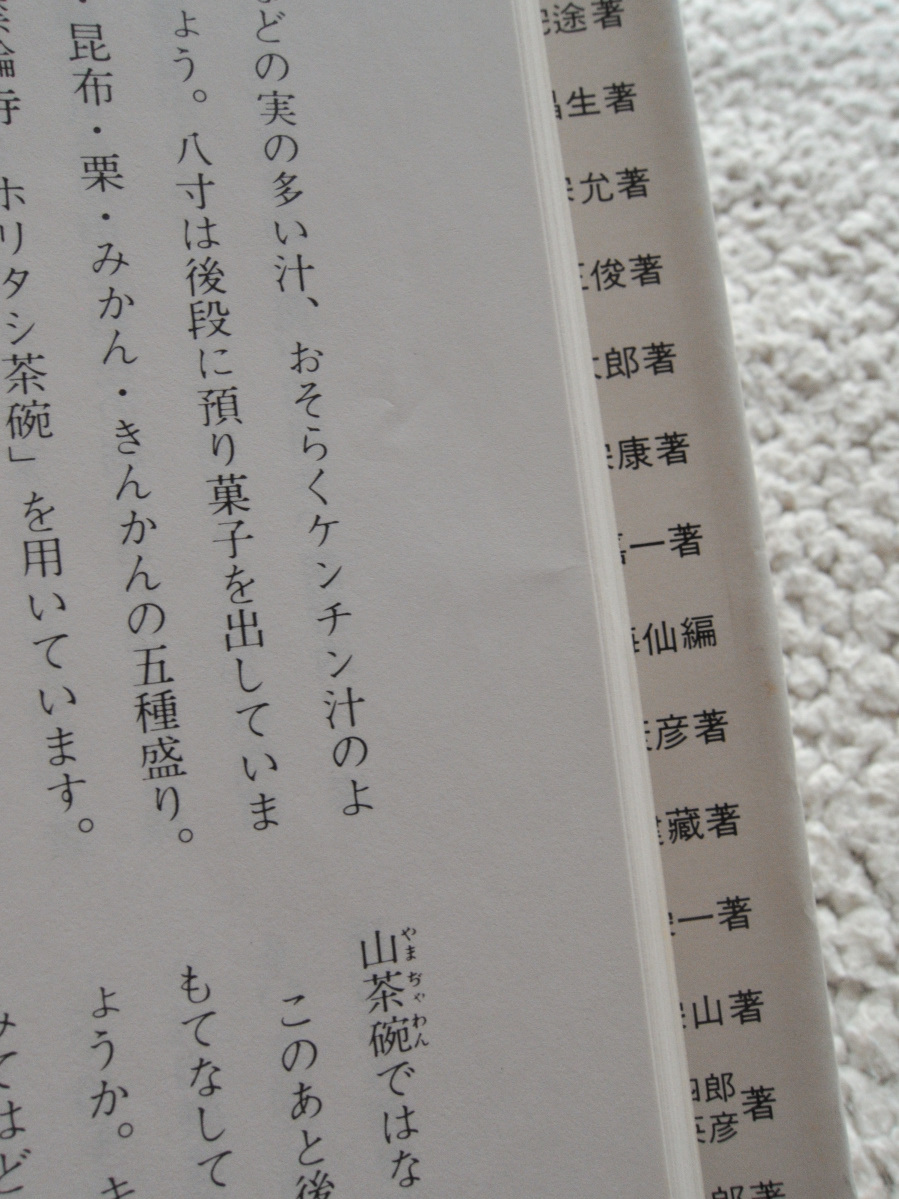 どの実の多い汁、おそらくケンチン汁のよ
ょう。八寸は後段に預り菓子を出していま
・昆布・栗・みかん・きんかんの五種盛り。
ホリタシ茶碗」を用いています。
山茶碗ではな
やまぢゃわん
このあと後
もてなして
ようか。キ
てはど
途著
生著
允著
俊著
郎著
康著
一著
仙編
彦著
藏著
一著
山著
郎
彦
著
郎著